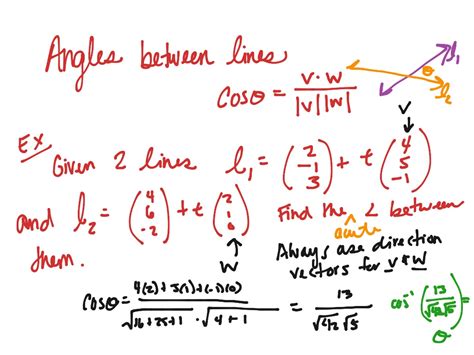 Angles between lines
cosθ = v·w / |v||w|
θ
l₁
l₂
v
Ex
Given 2 lines l₁ = (2 -1 3) + t (4 5 -1)
and l₂ = (4 6 -2) + t (2 1 0) Find the acute ∠ between
them.
w
Always use direction
vectors for v & w
cosθ = 4(2)+5(1)+(-1)(0) / √16+25+1 · √4+1 = 13 / √42 √5
cos⁻¹ (13 / √42 √5) =
θ